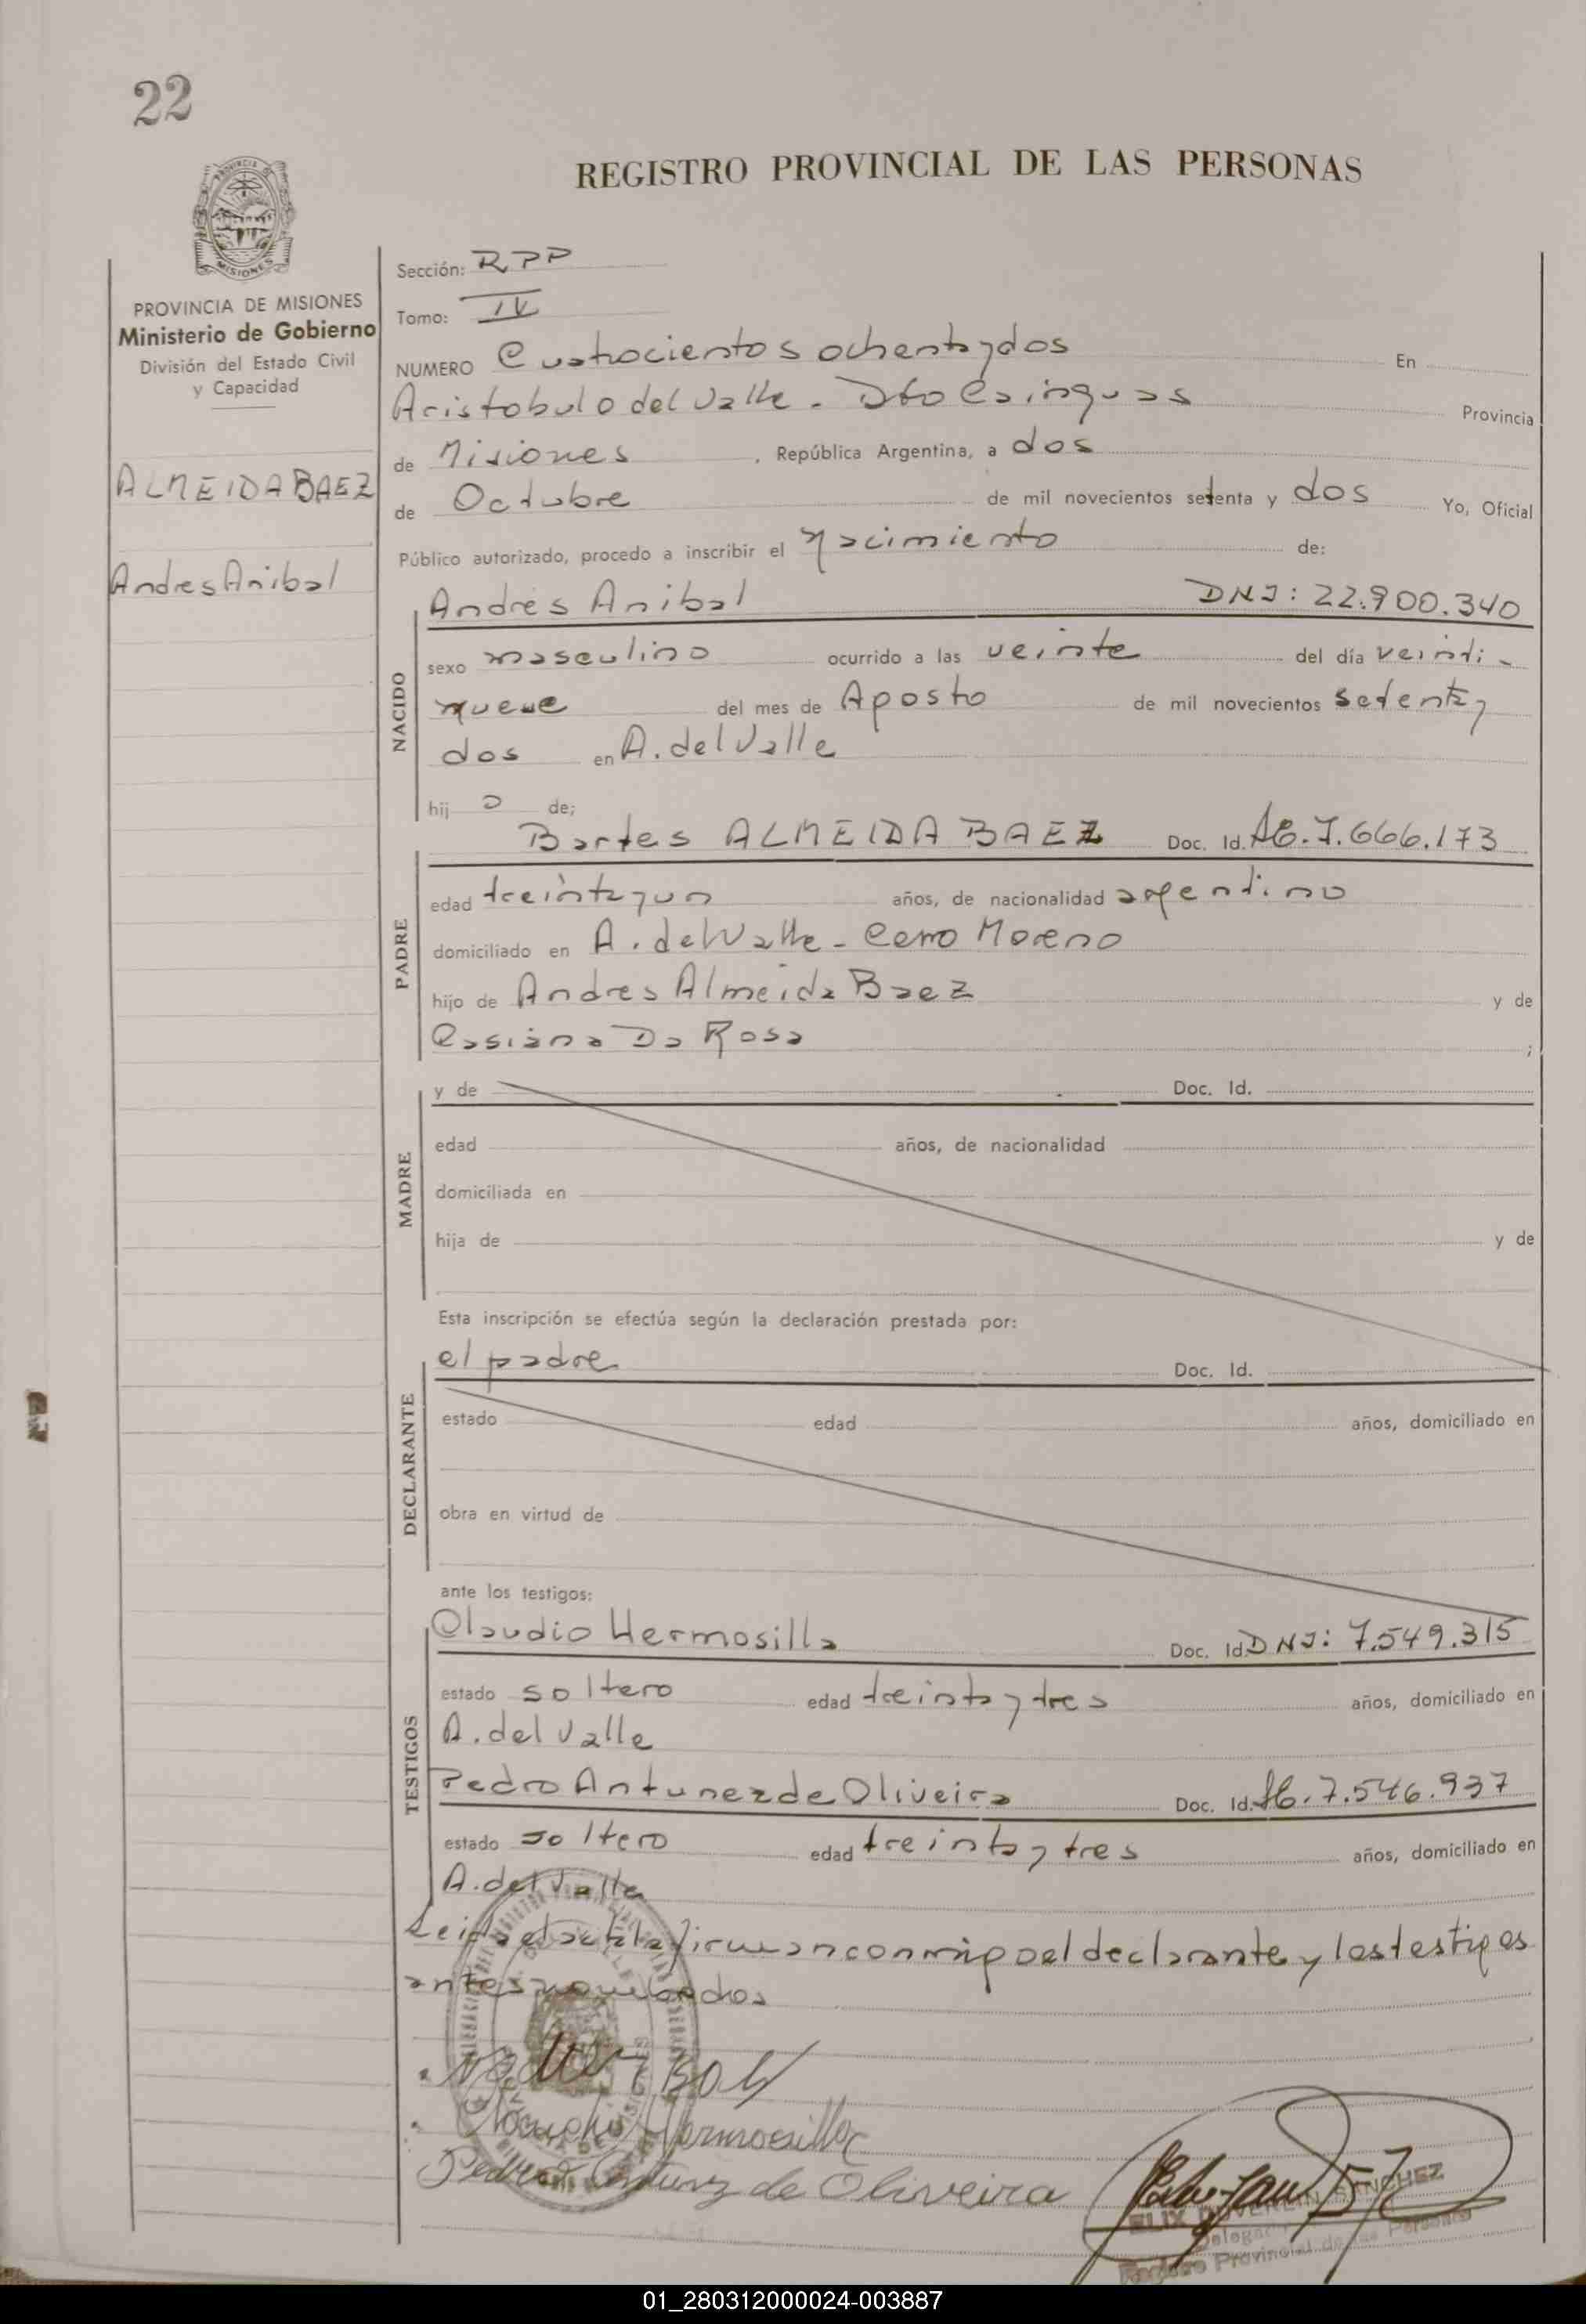 22
REGISTRO PROVINCIAL DE LAS PERSONAS
PROVINCIA DE MISIONES
Ministerio de Gobierno
División del Estado Civil
y Capacidad
ALMEIDA BAEZ
Andres Anibal
Sección: RPP
Tomo: IV
NUMERO Cuatrocientos ochenta y dos En
Aristobulo del Valle - Dto Cainguas Provincia
de Misiones, República Argentina, a dos
de Octubre de mil novecientos setenta y dos Yo, Oficial
Público autorizado, procedo a inscribir el nacimiento de:
NACIDO
Andrés Anibal DNI: 22.900.340
sexo masculino ocurrido a las veinte del día veinti-
nueve del mes de Agosto de mil novecientos setenta y
dos en A. del Valle
hijo de;
PADRE
Bortes ALMEIDA BAEZ Doc. Id. 7.666.173
edad treinta y un años, de nacionalidad argentino
domiciliado en A. del Valle - Cerro Moreno
hijo de Andres Almeida Baez y de
Casiana Da Rosa ;
MADRE
y de Doc. Id.
edad años, de nacionalidad
domiciliada en
hija de y de
Esta inscripción se efectúa según la declaración prestada por:
DECLARANTE
el padre Doc. Id.
estado edad años, domiciliado en
obra en virtud de
ante los testigos:
TESTIGOS
Claudio Hermosilla Doc. Id. DNI: 7.549.315
estado soltero edad treinta y tres años, domiciliado en
A. del Valle
Pedro Antunez de Oliveira Doc. Id. 7.546.937
estado soltero edad treinta y tres años, domiciliado en
A. del Valle
Leida el acta la firman conmigo el declarante y los testigos
antes nombrados
Hermosilla
Pedro Antunz de Oliveira
SANCHEZ
Registro Provincial de las Personas
01_280312000024-003887